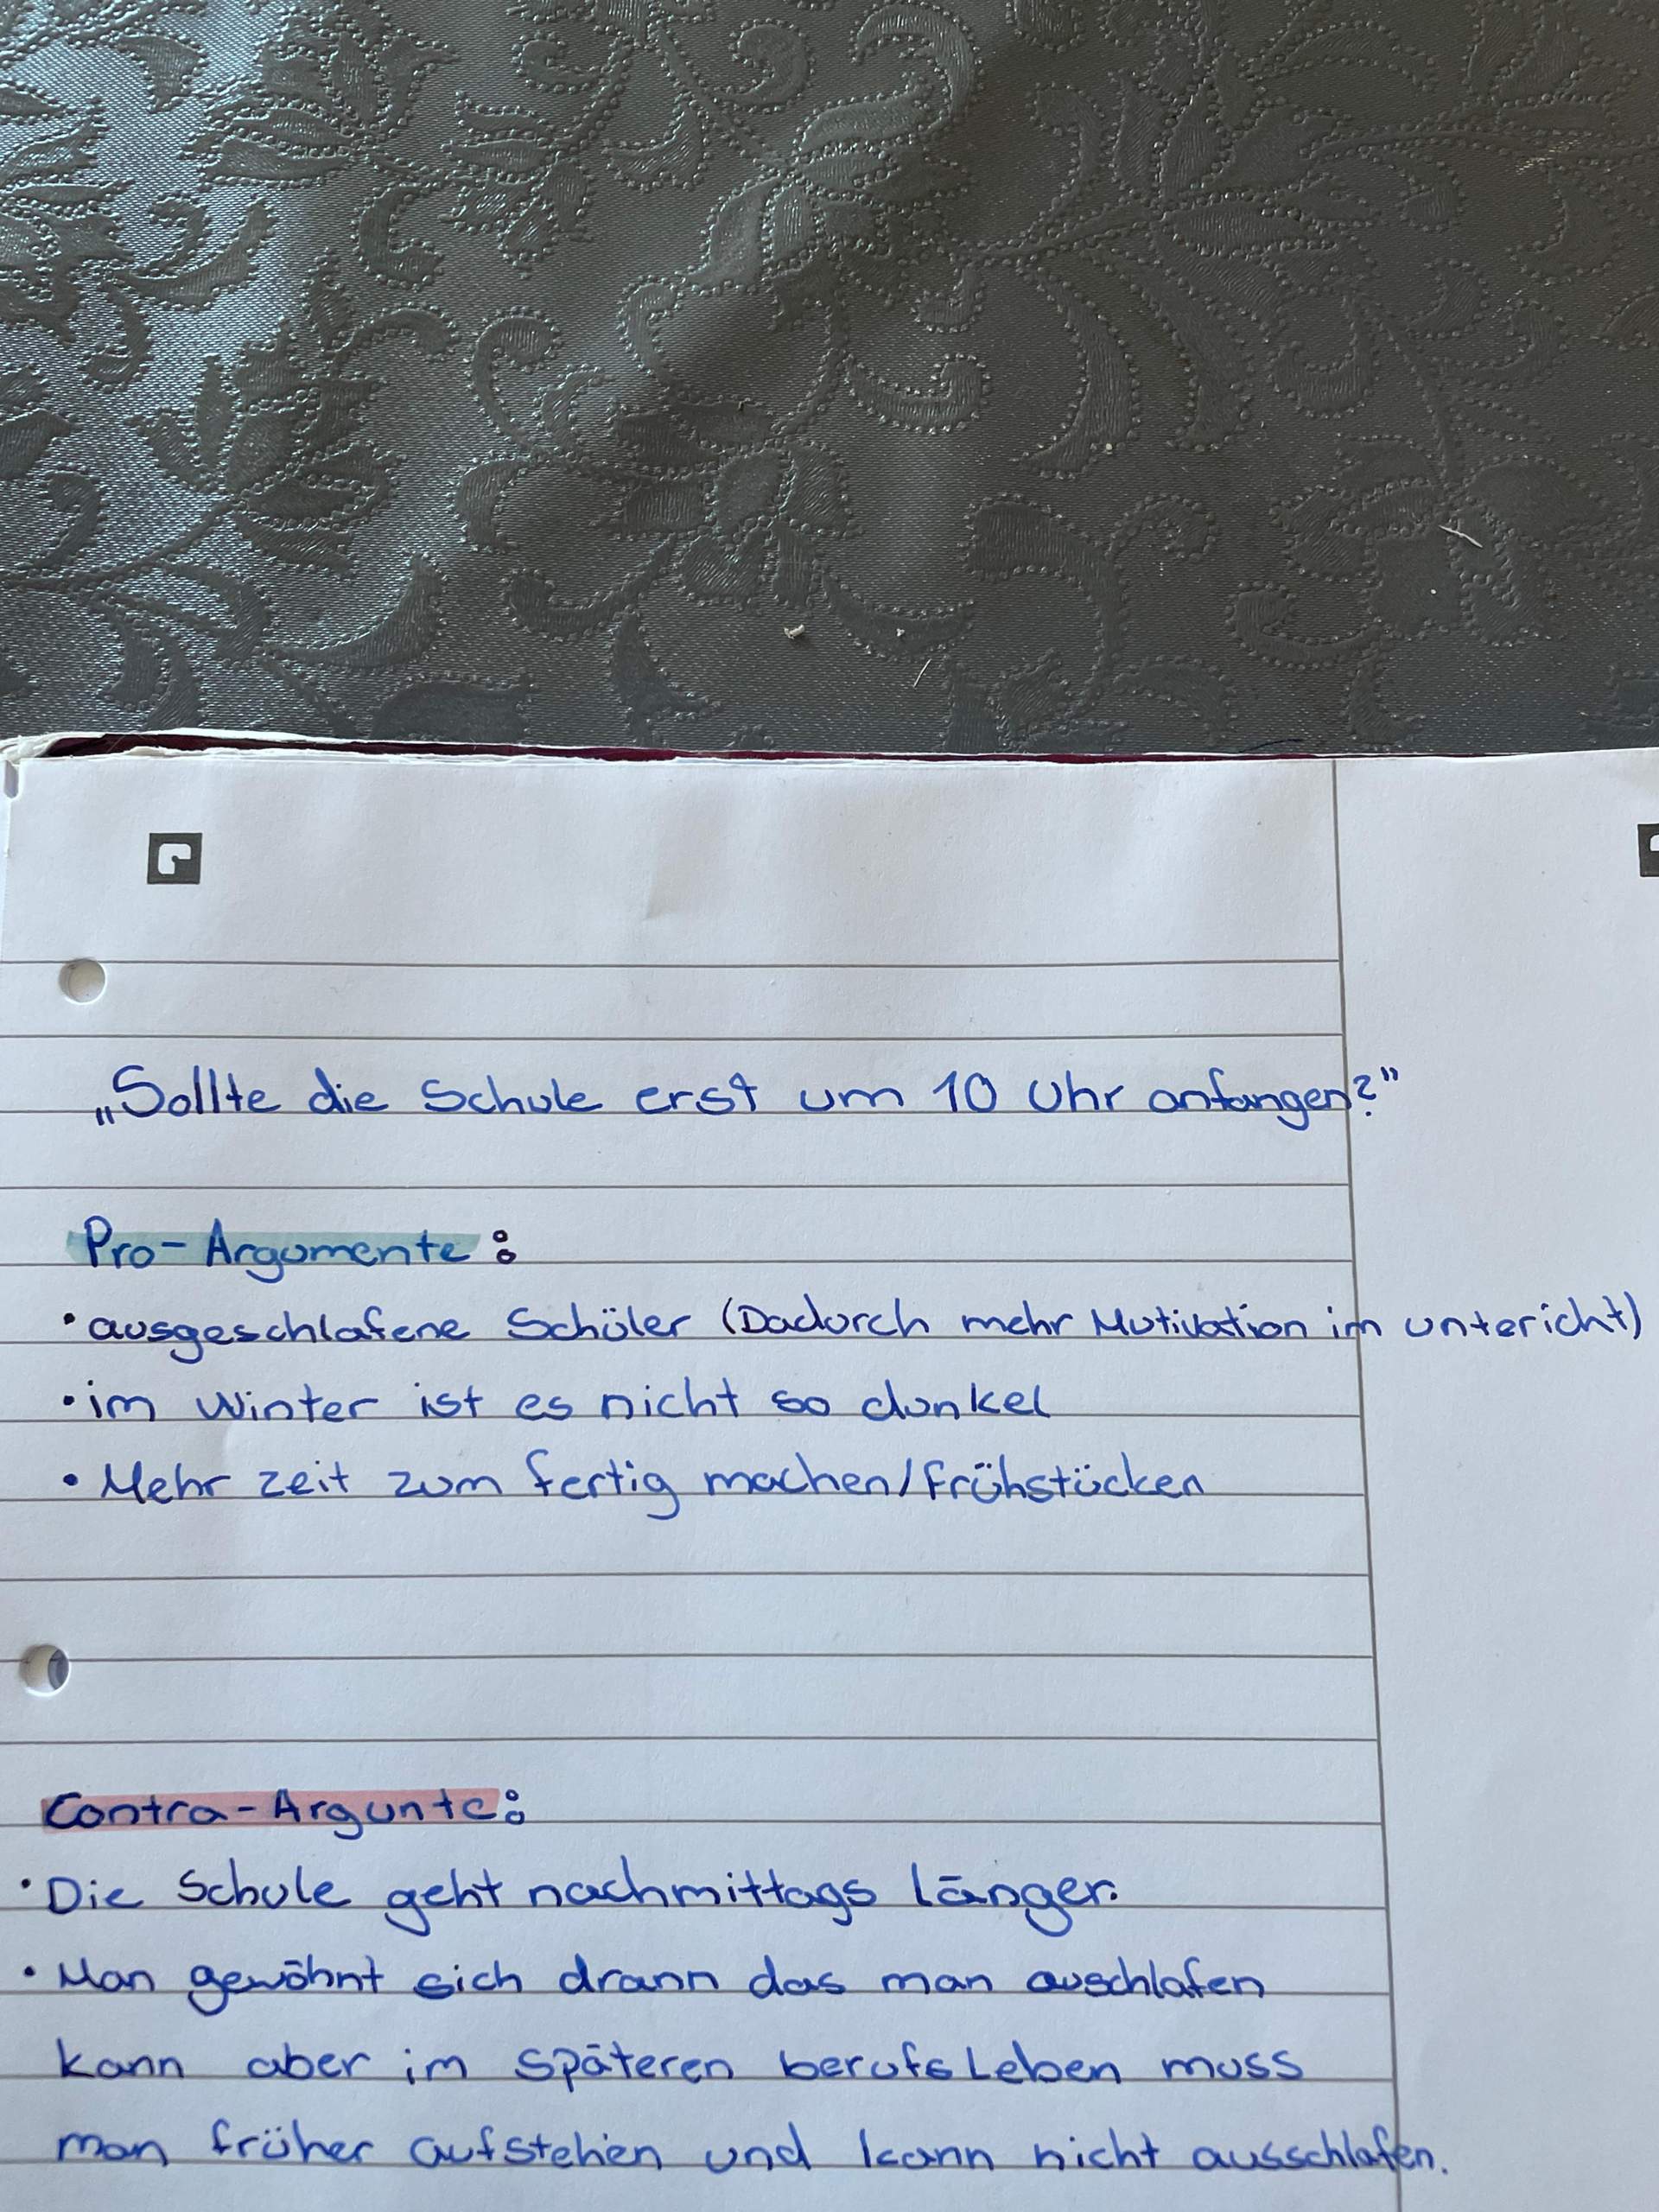 „Sollte die Schule erst um 10 Uhr anfangen?"
Pro-Argumente:
• ausgeschlafene Schüler (Dadurch mehr Motivation im unterricht)
• im Winter ist es nicht so dunkel
• Mehr zeit zum fertig machen/frühstücken
Contra-Argunte:
• Die Schule geht nachmittags länger.
• Man gewöhnt sich drann das man auschlafen
kann aber im späteren berufsleben muss
man früher aufstehen und kann nicht ausschlafen.